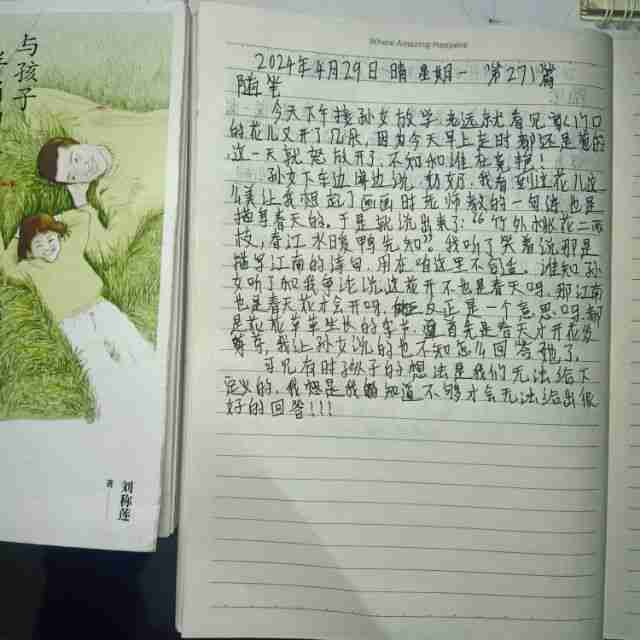 与孩子
刘称莲
著
2024年4月29日 晴 星期一 第271篇
随笔
今天下午接孙女放学老远就看见家门口
的花儿又开了几朵，因为今天早上走时都还是苞的
这一天就怒放开了，不知和谁在竞艳！
孙女下车边蹲边说：奶奶，我看到这花儿这
么美让我想起了画画时老师教的一句诗，也是
描写春天的。于是就说出来了：“竹外桃花三两
枝，春江水暖鸭先知”我听了笑着说那是
描写江南的诗句，用在咱这里不合适。谁知孙
女听了和我争论说，这花开不也是春天吗，那江南
也是春天花才会开呀，反正是一个意思呀都
首先是春天才开花发
芽产，我让孙女说的也不知怎么回答她了。
可见有时孩子的想法是我们无法给下
定义的，我想是我知道不够才会无法给出很
好的回答！！！